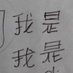 我是
我是